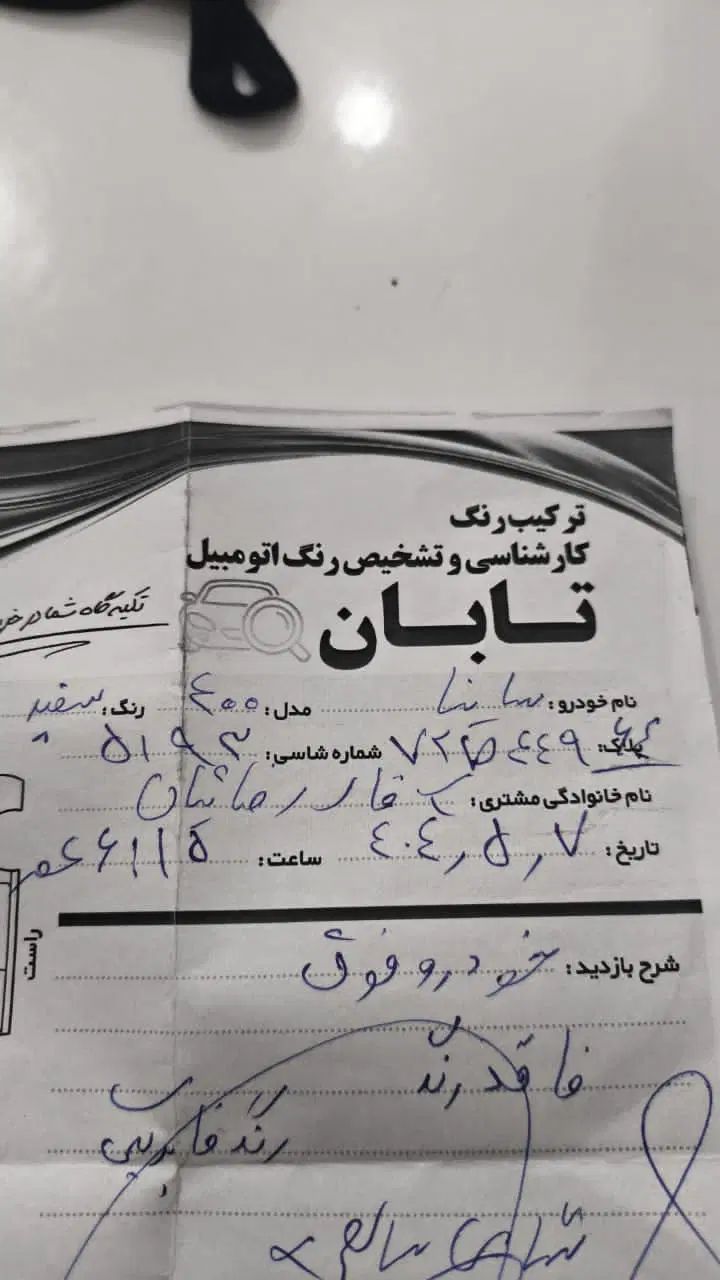 ترکیب رنگ
کارشناسی و تشخیص رنگ اتومبیل
تابان
تکیه گاه شما در خر
نام خودرو: ساینا مدل: ۴۰۰ رنگ: سفید
پلاک: ۷۲ ۴۴۹ شماره شاسی: ۵۱۹۳
نام خانوادگی مشتری:
تاریخ: ۴۰۴٫۵٫۷ ساعت:
راست
شرح بازدید: خودرو فوق
فاقد رنگ
رنگ فابریک
سالم